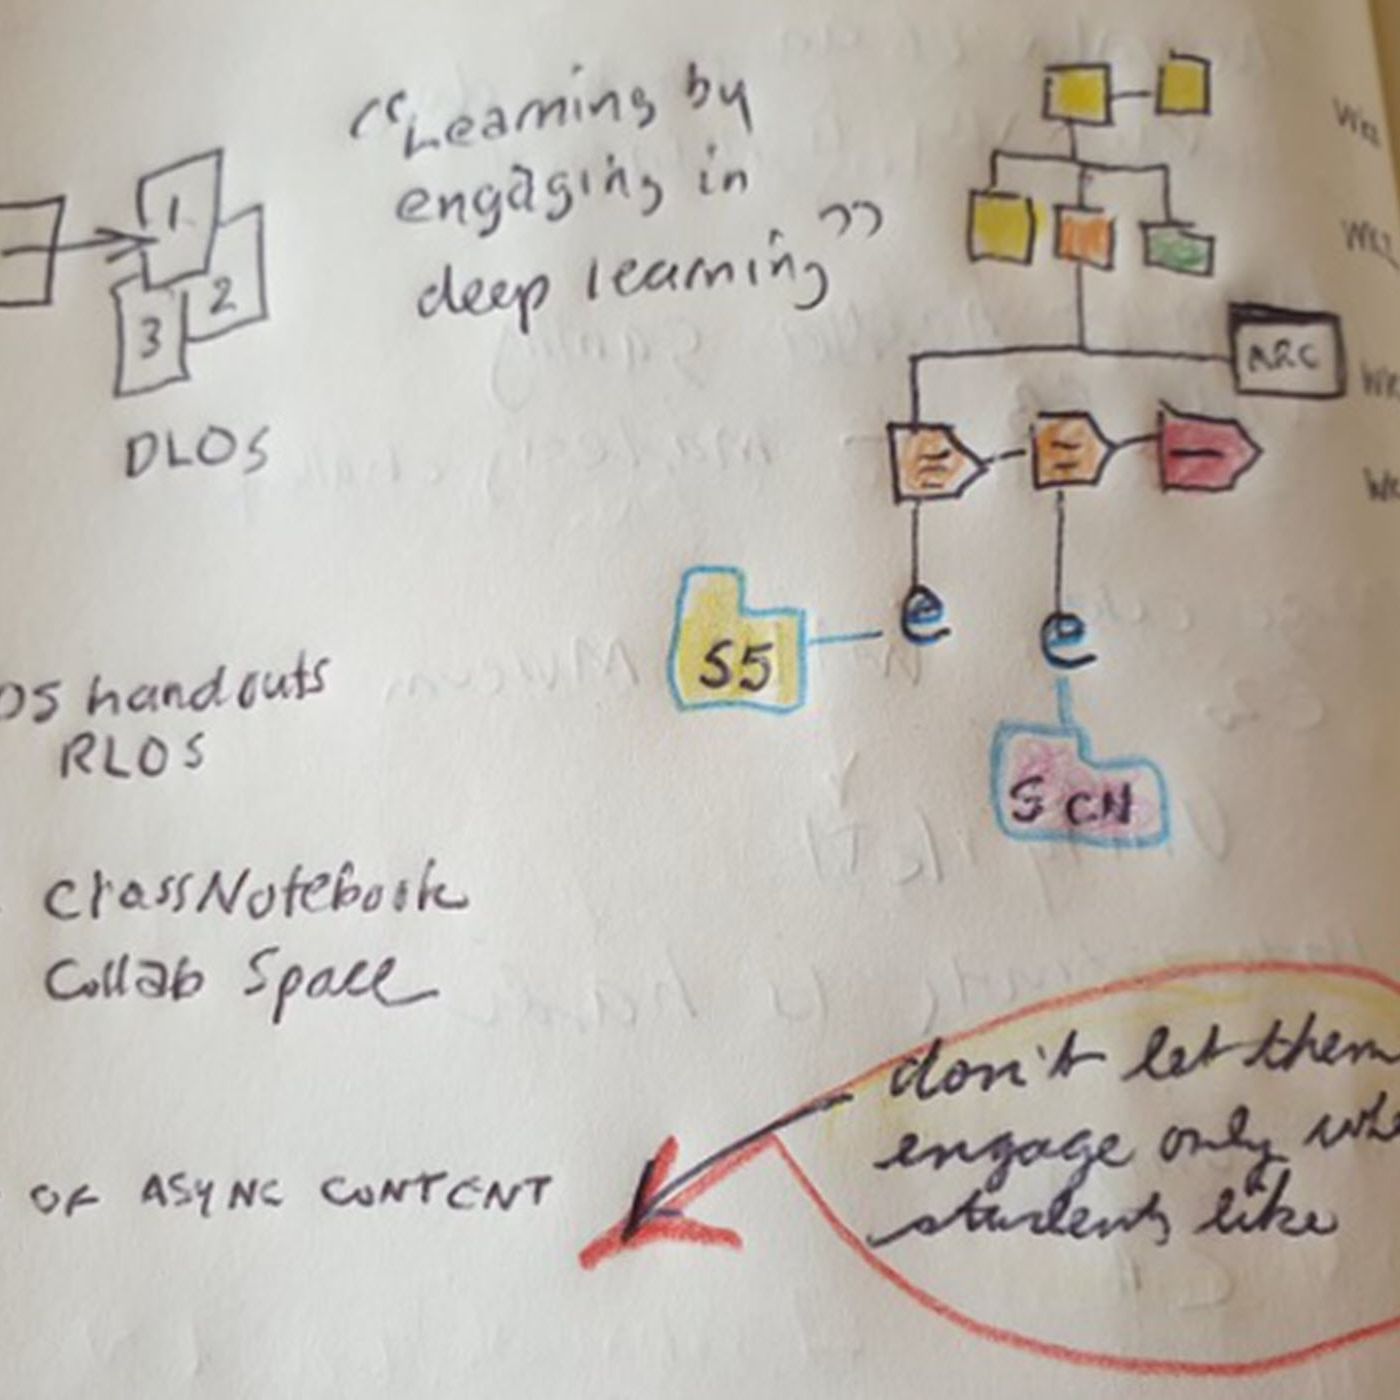 "Learning by
engaging in
deep learning"
1
2
3
DLOS
ARC
e
e
S5
S CN
handouts
RLOS
classNotebook
Collab Space
OF ASYNC CONTENT
don't let them
engage only
students like
Wk2